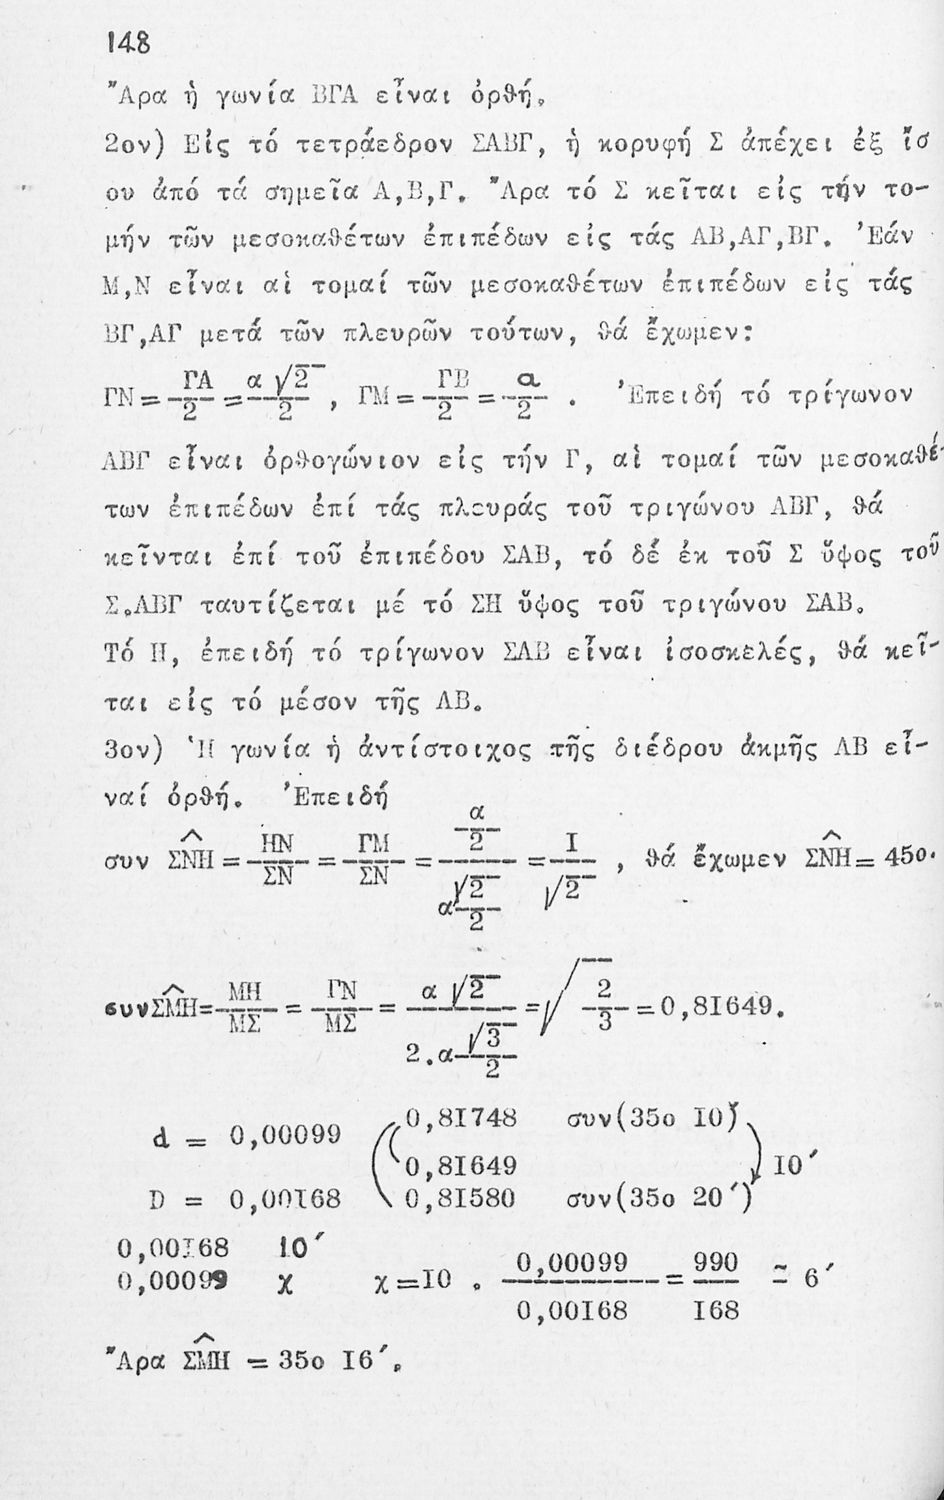 148
"Αρα ἡ γωνία ΒΓΑ εἶναι ὀρθή.
2ον) Εἰς τό τετράεδρον ΣΑΒΓ, ἡ κορυφή Σ ἀπέχει ἐξ ἴσ
ου ἀπό τά σημεῖα Α,Β,Γ. Ἄρα τό Σ κεῖται εἰς τήν το-
μήν τῶν μεσοκαθέτων ἐπιπέδων εἰς τάς ΑΒ,ΑΓ,ΒΓ. Ἐάν
Μ,Ν εἶναι αἱ τομαί τῶν μεσοκαθέτων ἐπιπέδων εἰς τάς
ΒΓ,ΑΓ μετά τῶν πλευρῶν τούτων, θά ἔχωμεν:
ΓΝ = ΓΑ/2 = α√2/2 , ΓΜ = ΓΒ/2 = α/2 . Ἐπειδή τό τρίγωνον
ΑΒΓ εἶναι ὀρθογώνιον εἰς τήν Γ, αἱ τομαί τῶν μεσοκαθέ-
των ἐπιπέδων ἐπί τάς πλευράς τοῦ τριγώνου ΑΒΓ, θά
κεῖνται ἐπί τοῦ ἐπιπέδου ΣΑΒ, τό δέ ἐκ τοῦ Σ ὕψος τοῦ
Σ.ΑΒΓ ταυτίζεται μέ τό ΣΗ ὕψος τοῦ τριγώνου ΣΑΒ.
Τό Η, ἐπειδή τό τρίγωνον ΣΑΒ εἶναι ἰσοσκελές, θά κεῖ-
ται εἰς τό μέσον τῆς ΑΒ.
3ον) Ἡ γωνία ἡ ἀντίστοιχος τῆς διέδρου ἀκμῆς ΑΒ εἶ-
ναί ὀρθή. Ἐπειδή
συν ΣΝΗ = ΗΝ/ΣΝ = ΓΜ/ΣΝ = (α/2)/(α√2/2) = Ι/√2 , θά ἔχωμεν ΣΝΗ = 45ο.
συνΣΜΗ = ΜΗ/ΜΣ = ΓΝ/ΜΣ = α√2/(2.α√3/2) = √(2/3) = 0,8Ι649.
d = 0,00099 0,8Ι748 συν(35ο Ι0΄)
0,8Ι649 Ι0΄
D = 0,00Ι68 0,8Ι580 συν(35ο 20΄)
0,00Ι68 10΄
0,00099 χ χ = Ι0 . 0,00099/0,00Ι68 = 990/Ι68 ≃ 6΄
"Αρα ΣΜΗ = 35ο Ι6΄.